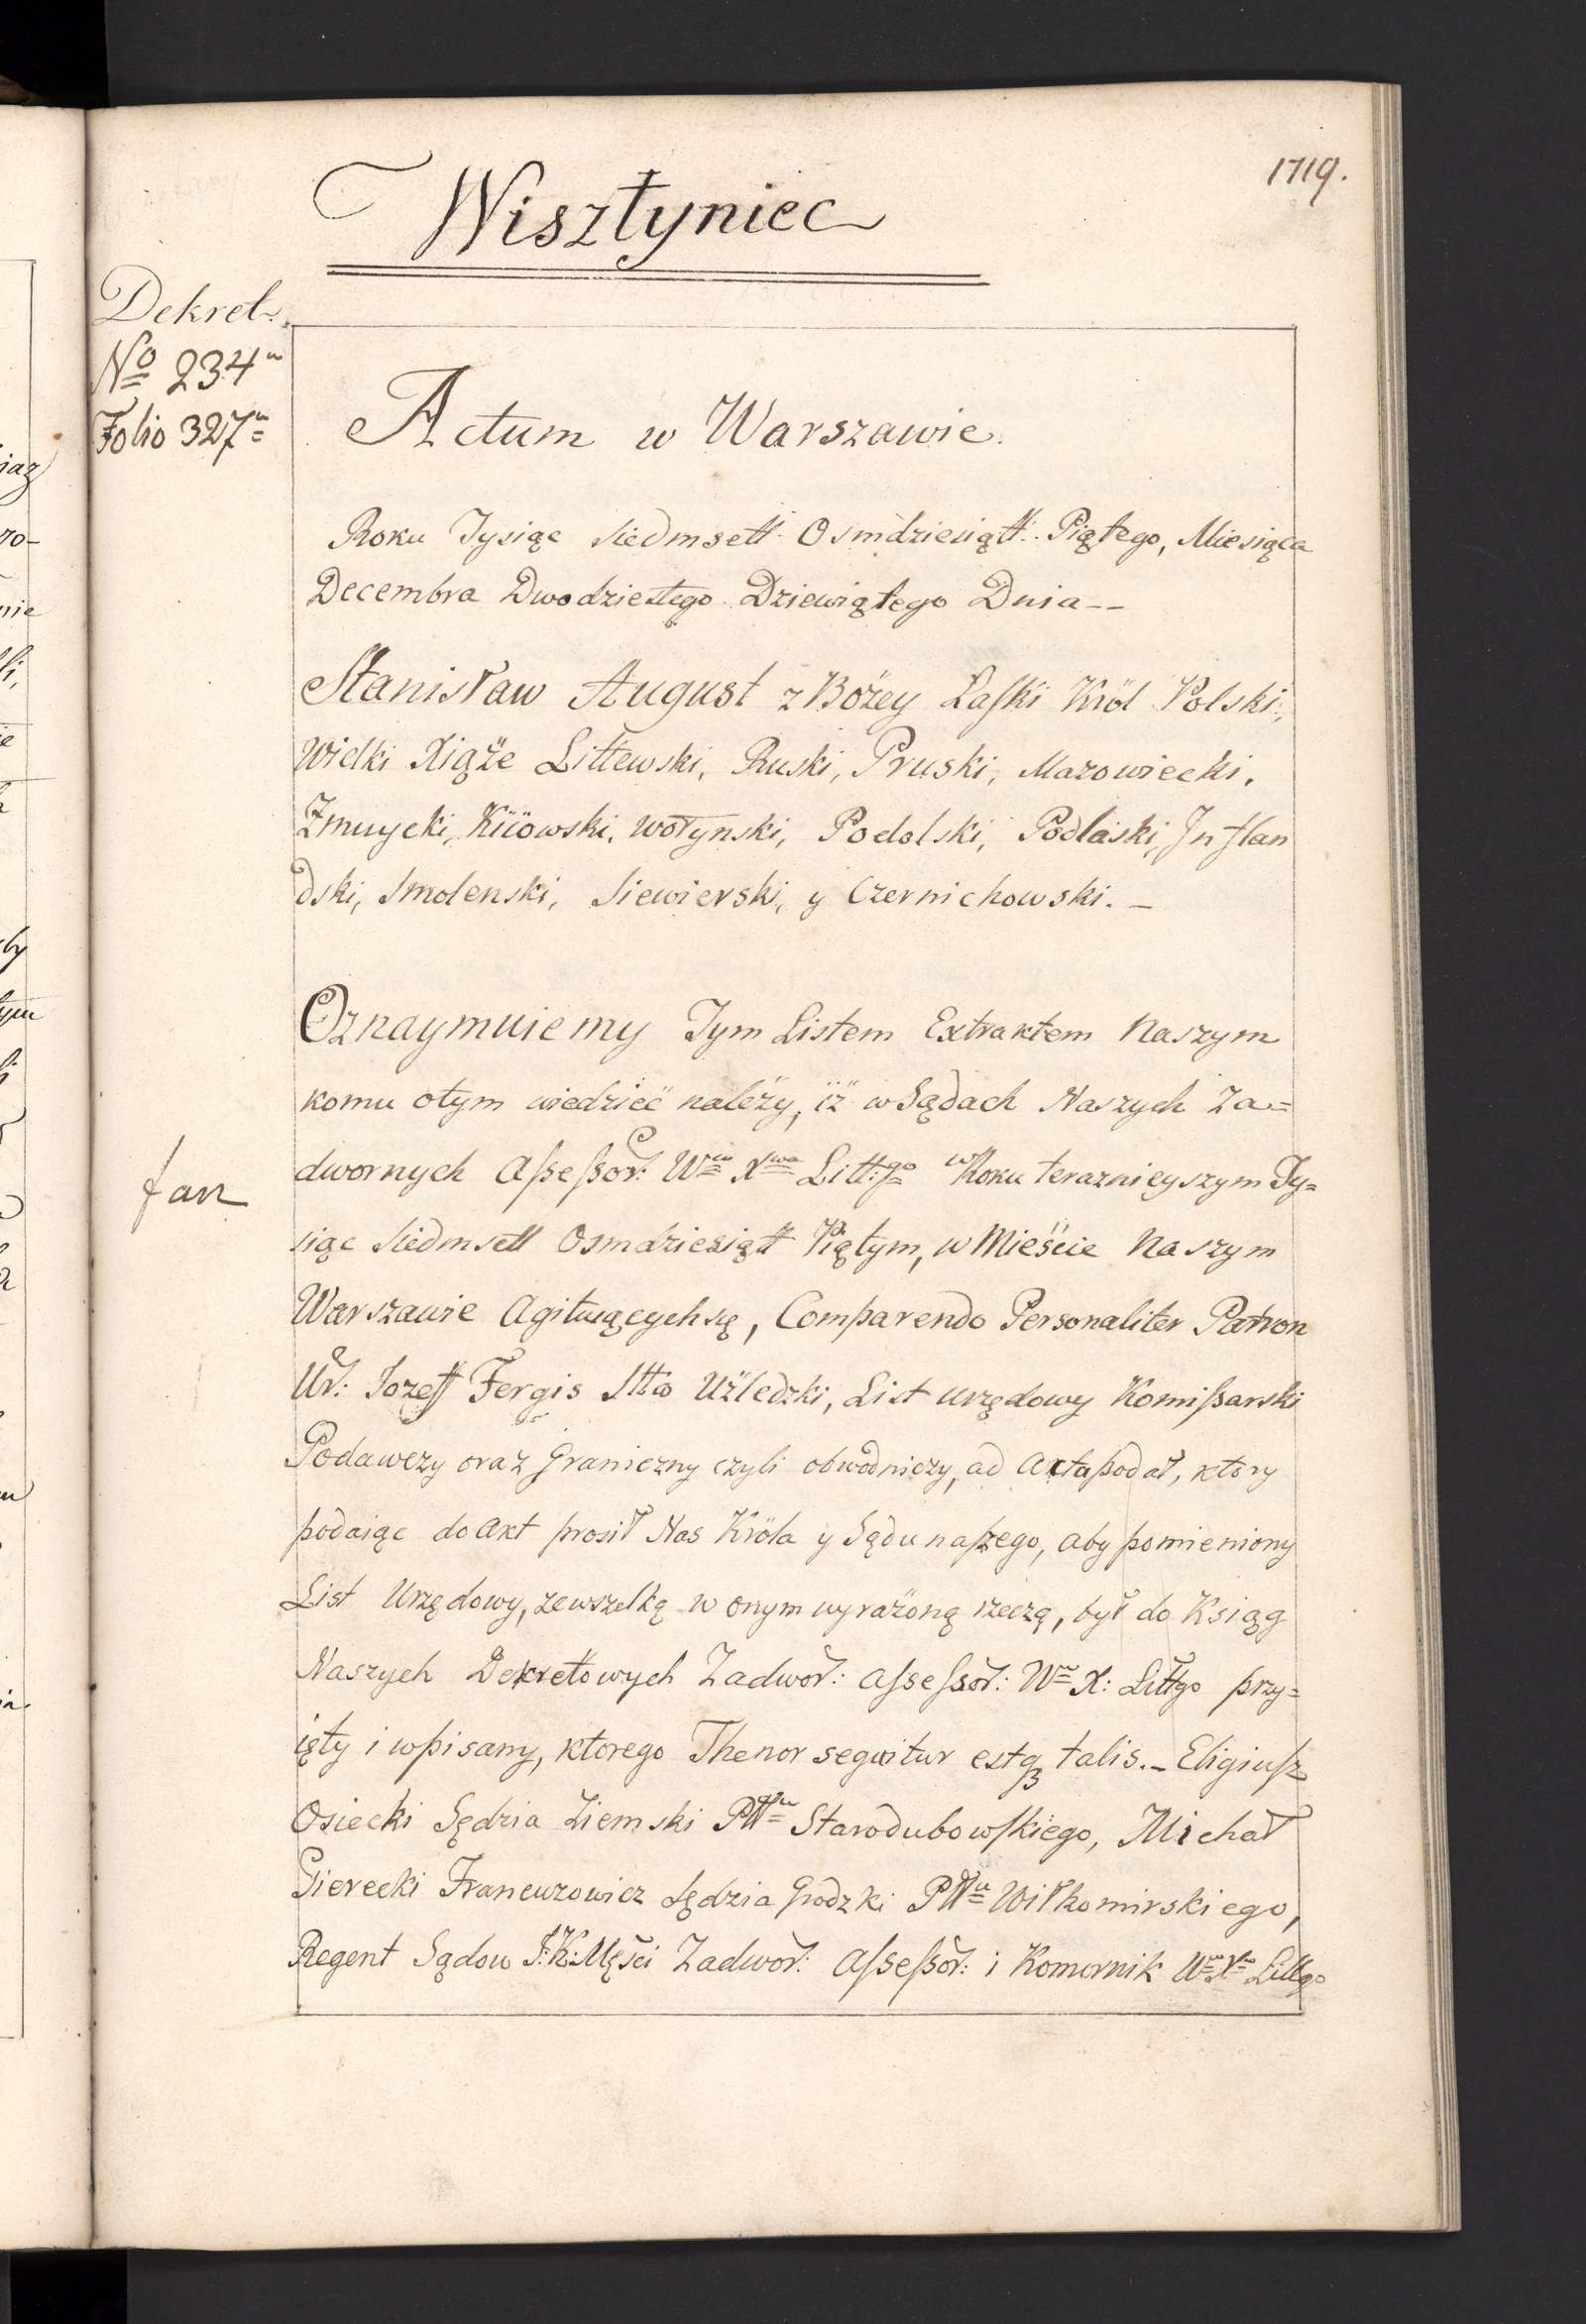 1719.
Wisztyniec
Dekret.
No 234
Folio 327
Actum w Warszawie.
Roku Tysiąc Siedmsett Osmdziesiątt Piątego, Miesiąca
Decembra Dwodziestego Dziewiątego Dnia--
Stanisław August z Bożey Łaski Król Polski,
Wielki Xiąże Littewski, Ruski, Pruski, Mazowiecki,
Zmuycki, Kiiowski, wołynski, Podolski, Podlaski, Inflan
dski, Smolenski, Siewierski, y Czernichowski. –
Oznaymuiemy Tym Listem Extraktem Naszym
komu otym wiedzieć należy, iż w Sądach Naszych Za=
dwornych Assessor: Wo Xwa Litt:go w Roku teraznieyszym Ty=
siąc Siedmsett Osmdziesiątt Piątym, w Mieście Naszym
Warszawie Agituiącychsię, Comparendo Personaliter Patron
Ur: Jozeff Fergis Stta Użledzki, List urzędowy Komissarski
Podawczy oraz Graniczny czyli obwodniczy, ad Acta podał, ktory
podaiąc do Akt prosił Nas Króla y Sądu naszego, aby pomieniony
List Urzędowy, zewszelką w onym wyrażoną rzeczą, był do Ksiąg
Naszych Dekretowych Zadwor: Assessor: W X: Littgo przy=
ięty i wpisany, ktorego Thenor sequitur estq talis. – Eligiusz
Osiecki Sędzia Ziemski Pttu Starodubowskiego, Michał
Gierecki Francuzowicz Sędzia Grodzki Pttu Wiłkomirskiego,
Regent Sądow J:K:Mści Zadwor: Assessor: i Komornik W X Littgo